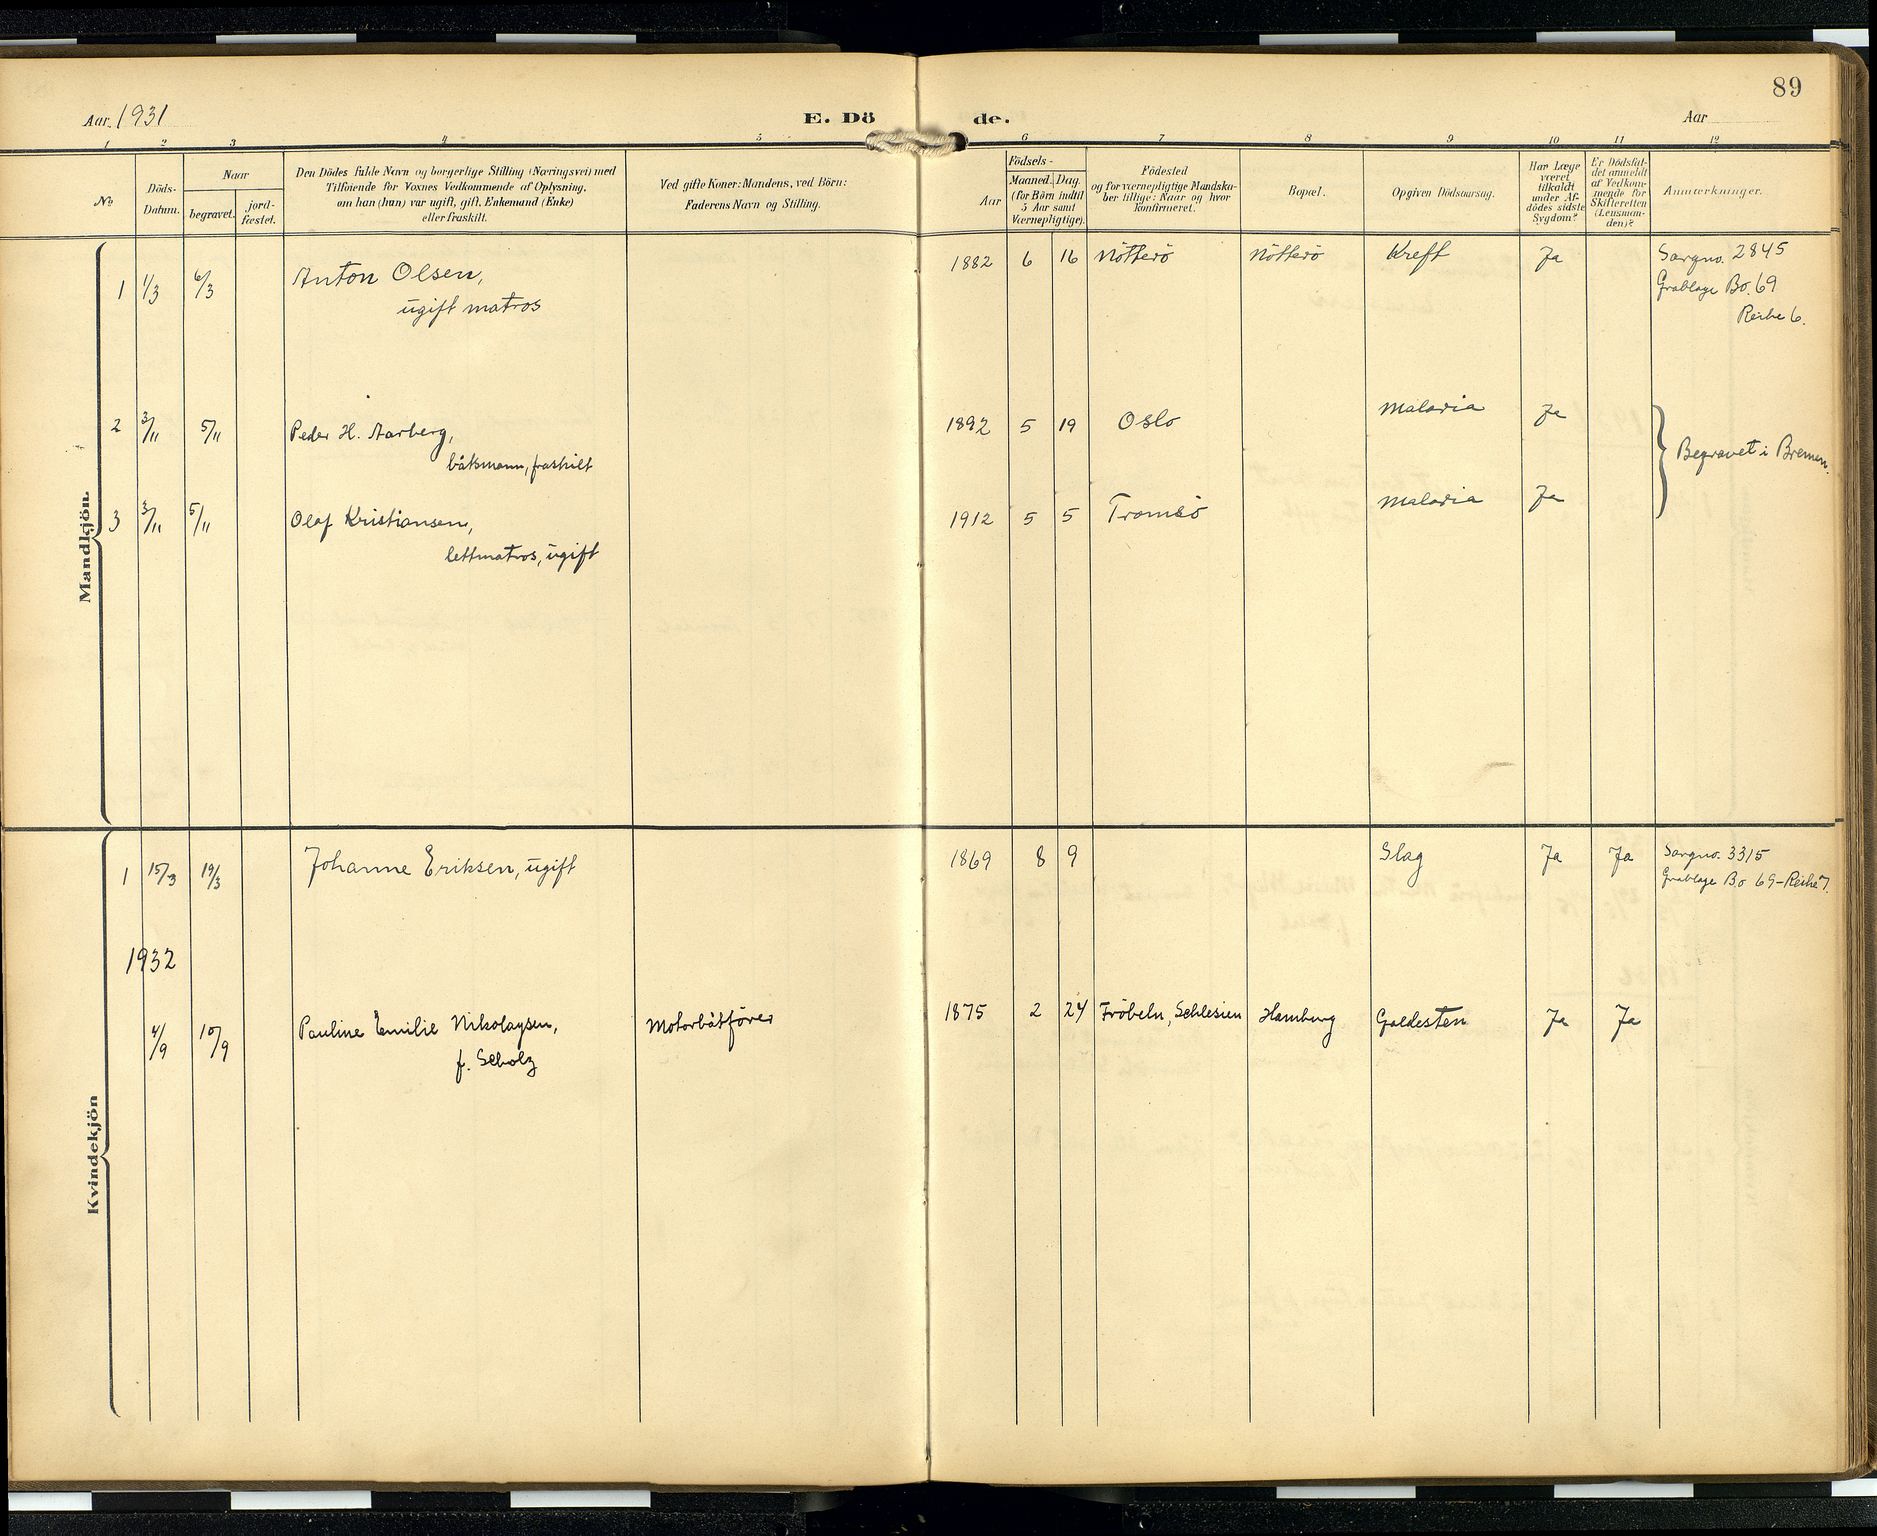 89
Aar. 1931
E. Dö de.
Aar
1 2 3 4 5 6 7 8 9 10 11 12
No
Döds-
Datum.
Naar
begravet.
jord-
fæstet.
Den Dödes fulde Navn og borgerlige Stilling (Næringsvei) med
Tilföiende for Voxnes Vedkommende af Oplysning,
om han (hun) var ugift, gift, Enkemand (Enke)
eller fraskilt.
Ved gifte Koner: Mandens, ved Börn:
Faderens Navn og Stilling.
Födsels-
Aar
Maaned. Dag.
(for Börn indtil
5 Aar samt
Værnepligtige).
Födested
og for værnepligtige Mandska-
ber tillige: Naar og hvor
konfirmeret.
Bopæl.
Opgiven Dödsaarsag.
Har Læge
været
tilkaldt
under Af-
dödes sidste
Sygdom?
Er Dödsfal-
det anmeldt
af Vedkom-
mende for
Skifteretten
(Lensman-
den)?
Anmærkninger.
Mandkjön.
1 1/3 6/3 Anton Olsen, 1882 6 16 Nötterö Nötterö Kreft Ja Sargno. 2845
ugift matros Grablage Bo. 69
Reihe 6.
2 3/11 5/11 Peder H. Aarberg, 1892 5 19 Oslo Malaria Ja
båtsmann, fraskilt
Begravet i Bremen.
3 3/11 5/11 Olaf Kristiansen, 1912 5 5 Tromsö Malaria Ja
lettmatros, ugift
Kvindekjön
1 15/3 19/3 Johanne Eriksen, ugift 1869 8 9 Slag Ja Ja Sargno. 3315
Grablage Bo 69-Reihe 7.
1932
4/9 10/9 Pauline Emilie Nikolaysen, Motorbåtförer 1875 2 24 Fröbeln, Schlesien Hamburg Galdesten Ja Ja
f. Scholz